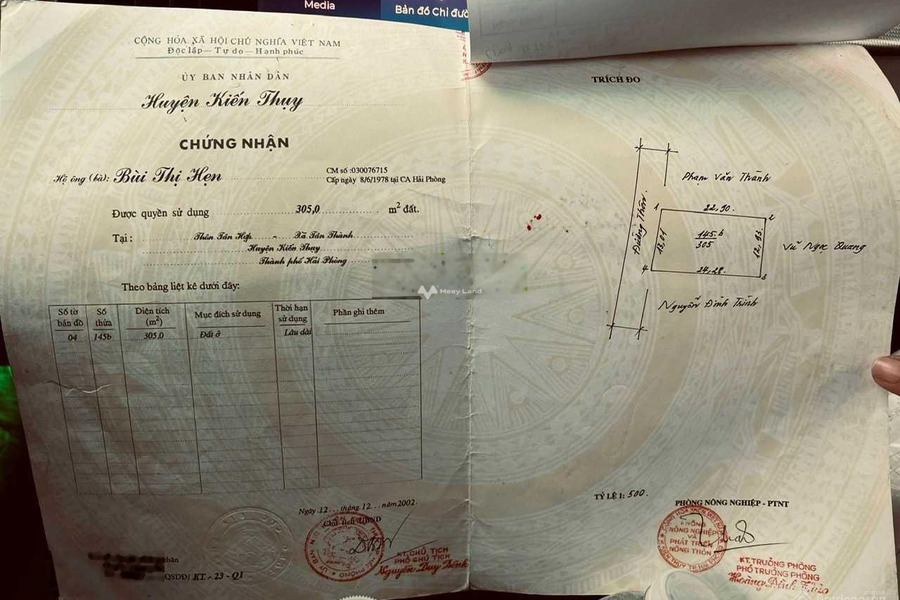 Media
Bản đồ Chỉ đườ
CỘNG HÒA XÃ HỘI CHỦ NGHĨA VIỆT NAM
Độc lập — Tự do — Hạnh phúc
ỦY BAN NHÂN DÂN
Huyện Kiến Thụy
CHỨNG NHẬN
Hộ ông (bà): Bùi Thị Hẹn
CM số :030076715
Cấp ngày 8/6/1978 tại CA Hải Phòng
Được quyền sử dụng 305,0 m² đất.
Tại : Thôn Tân Hợp - Xã Tân Thành
Huyện Kiến Thụy
Thành phố Hải Phòng
Theo bảng liệt kê dưới đây:
Số tờ bản đồ Số thửa Diện tích (m²) Mục đích sử dụng Thời hạn sử dụng Phần ghi thêm
04 145b 305,0 Đất ở Lâu dài
Meey Land
Ngày 12 tháng 12 năm 2002
Chủ tịch UBND
KT. CHỦ TỊCH
PHÓ CHỦ TỊCH
Nguyễn Duy Bình
QSDĐ KT - 23 - Q1
TRÍCH ĐO
Phạm Văn Thành
22,90
1
2
Đường Thôn
145b
305
Vũ Ngọc Quang
4
24,28
3
Nguyễn Đình Thinh
TỶ LỆ 1: 500.
PHÒNG NÔNG NGHIỆP - PTNT
PHÒNG
NÔNG NGHIỆP
VÀ
PHÁT TRIỂN
NÔNG THÔN
KT. TRƯỞNG PHÒNG
PHÓ TRƯỞNG PHÒNG